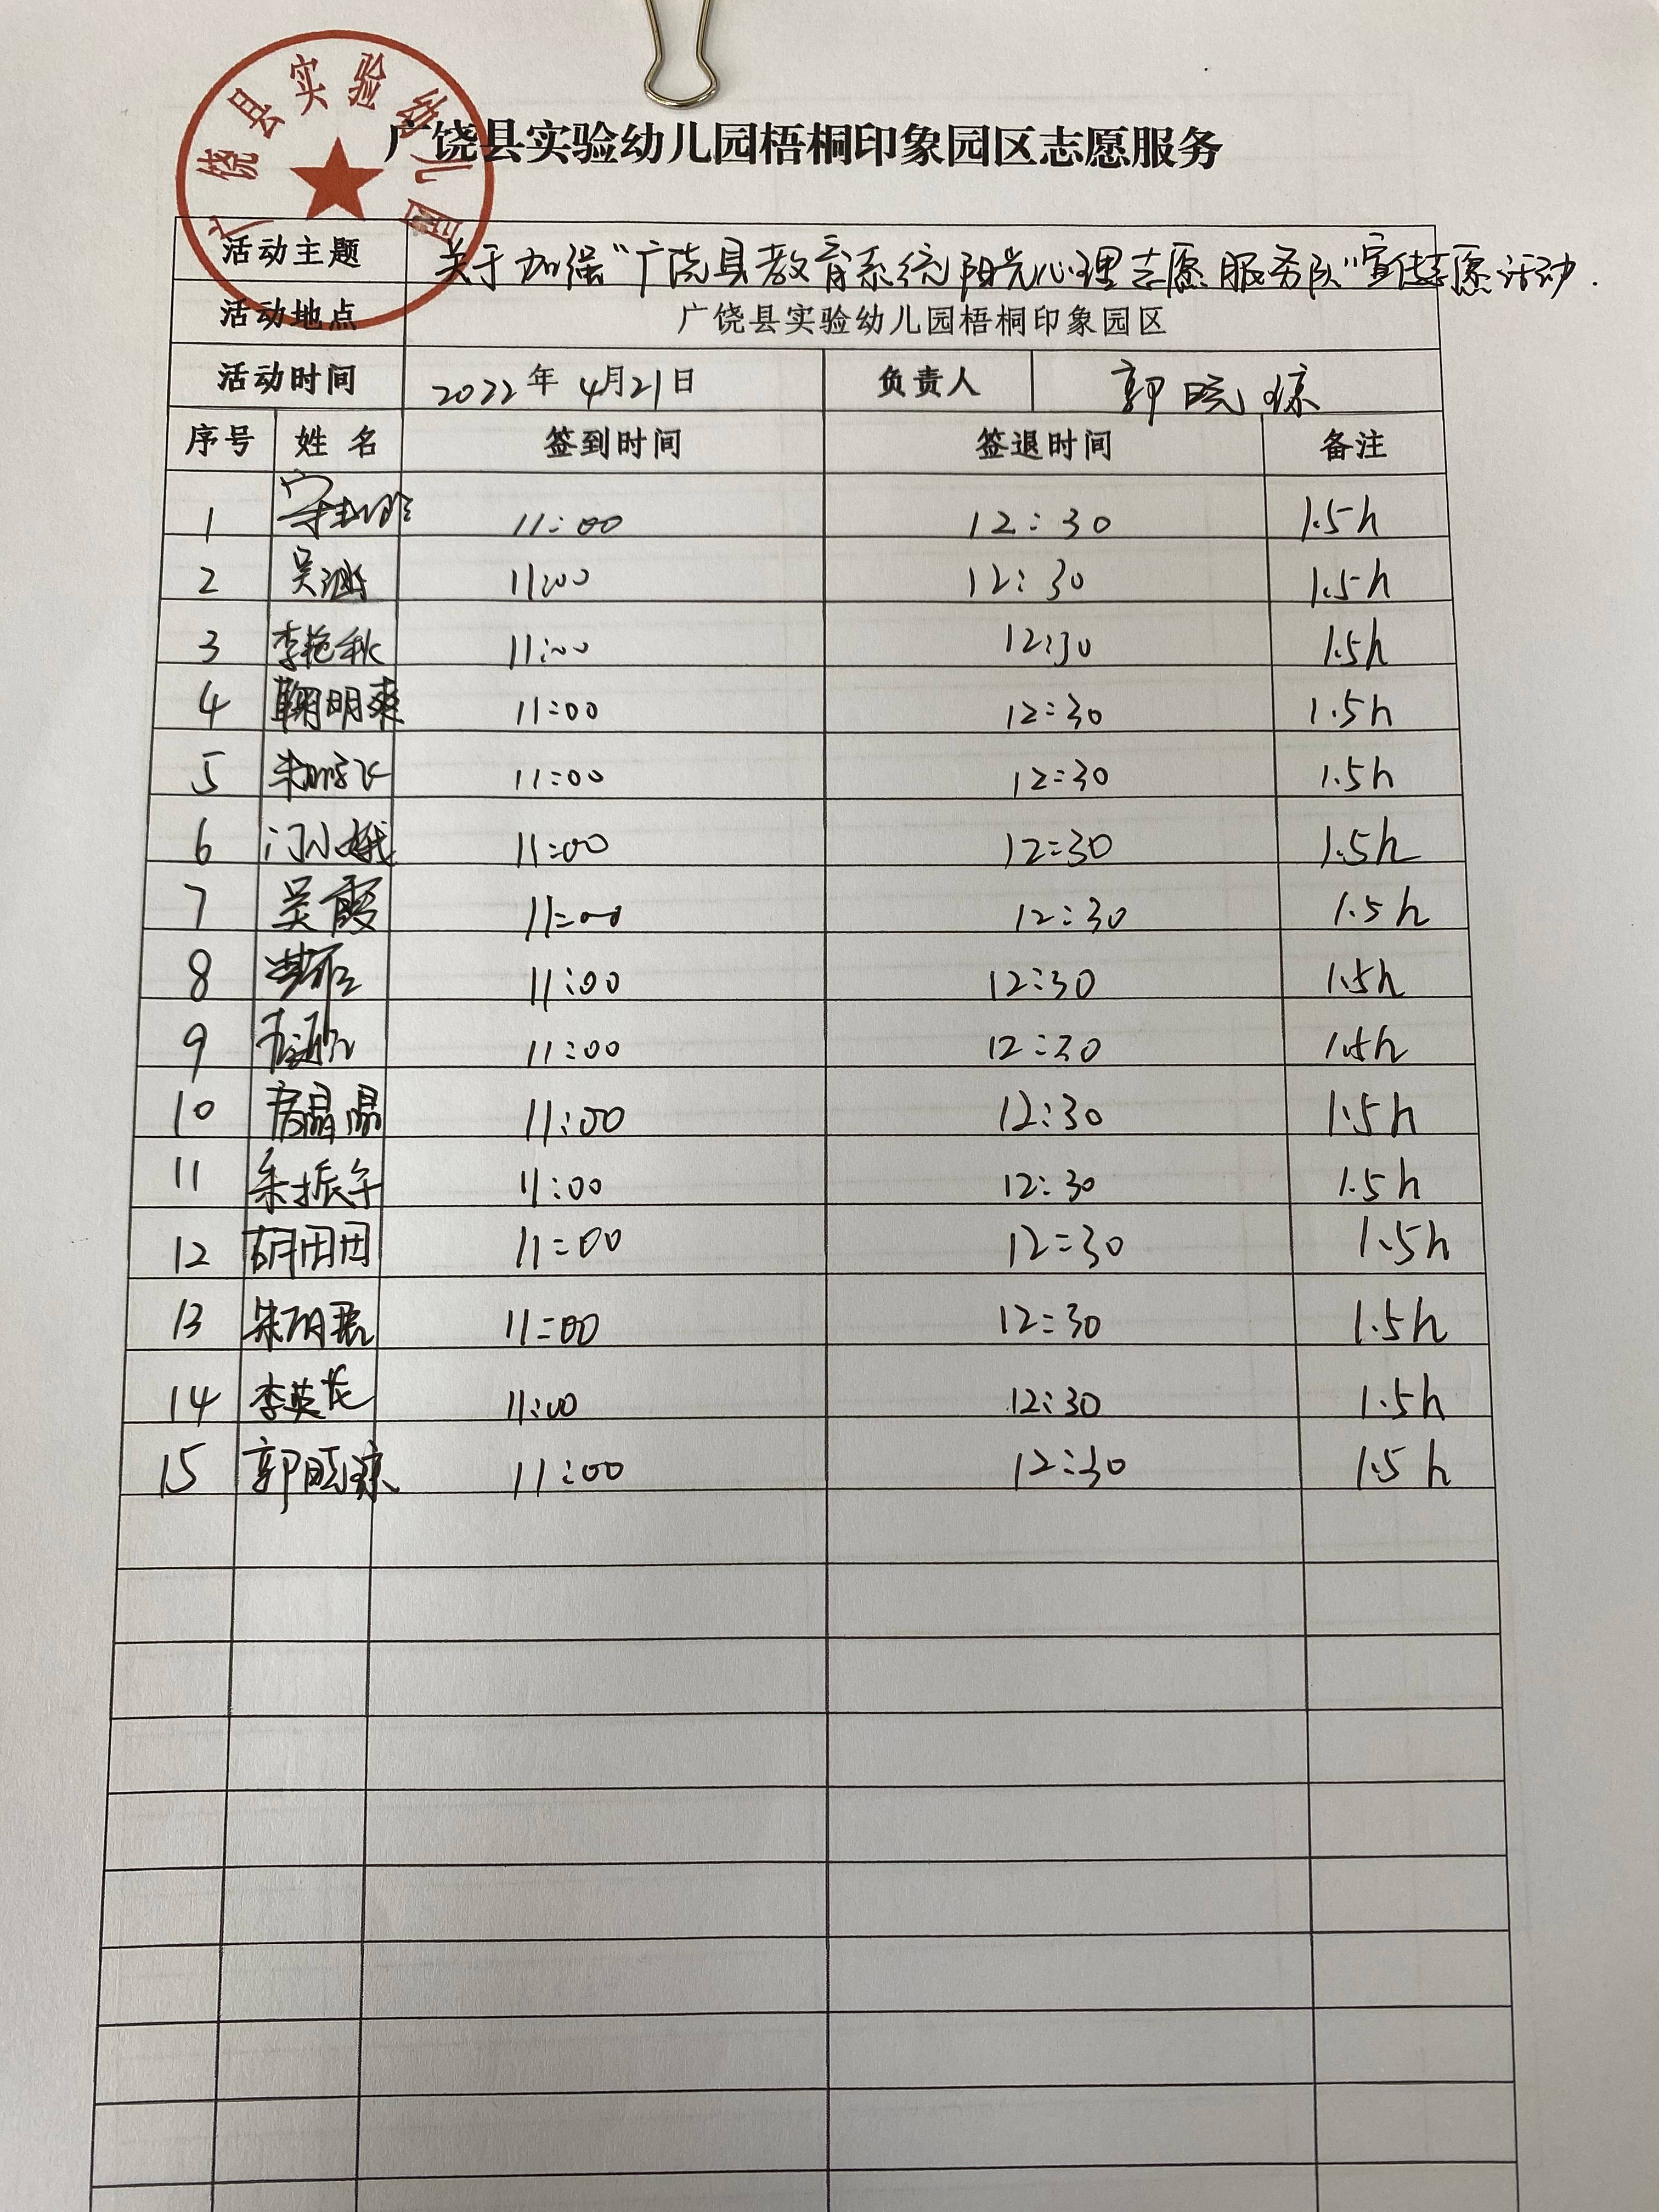 广饶县实验幼儿园
广饶县实验幼儿园梧桐印象园区志愿服务
活动主题 关于加强“广饶县教育系统阳光心理志愿服务队”宣传志愿活动.
活动地点 广饶县实验幼儿园梧桐印象园区
活动时间 2022年 4月21日 负责人 郭晓琼
序号 姓名 签到时间 签退时间 备注
1 11:00 12:30 1.5h
2 吴 11:00 12:30 1.5h
3 李艳秋 11:00 12:30 1.5h
4 鞠明爽 11:00 12:30 1.5h
5 11:00 12:30 1.5h
6 门小娥 11:00 12:30 1.5h
7 吴霞 11:00 12:30 1.5h
8 11:00 12:30 1.5h
9 11:00 12:30 1.5h
10 房晶晶 11:00 12:30 1.5h
11 朱振华 11:00 12:30 1.5h
12 胡田田 11:00 12:30 1.5h
13 朱丽君 11:00 12:30 1.5h
14 李英花 11:00 12:30 1.5h
15 郭晓琼 11:00 12:30 1.5h